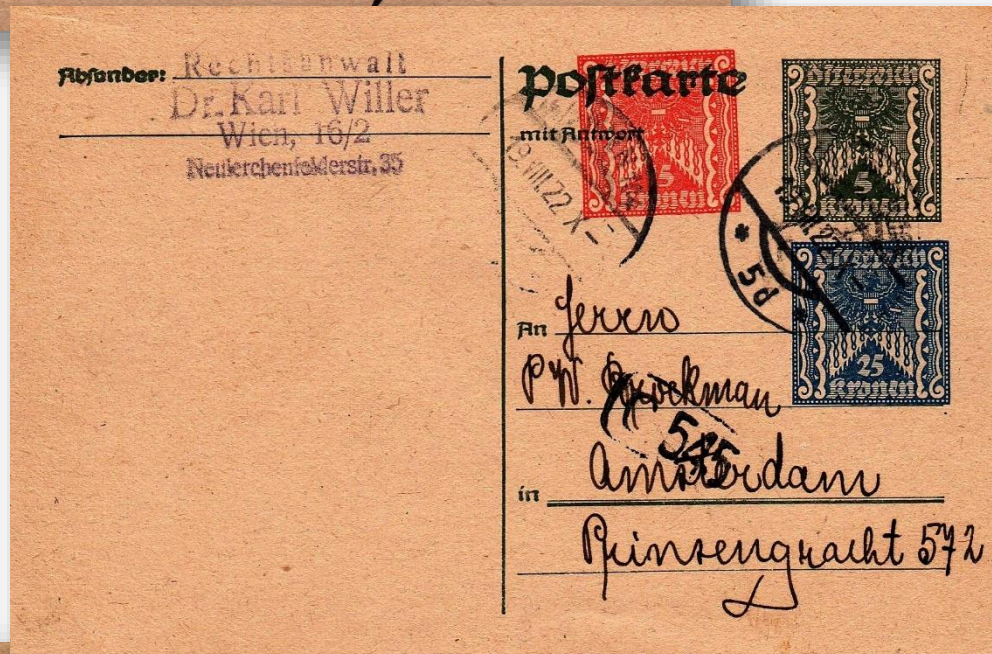 Absender: Rechtsanwalt
Dr. Karl Willer
Wien, 16/2
Neulerchenfelderstr. 35
Postkarte
mit Antwort
5
Kronen
Österreich
5
Kronen
Österreich
25
Kronen
VIII.22 X
* 5d *
An Herrn
P.W. Brockman
545
in Amsterdam
Prinsengracht 572